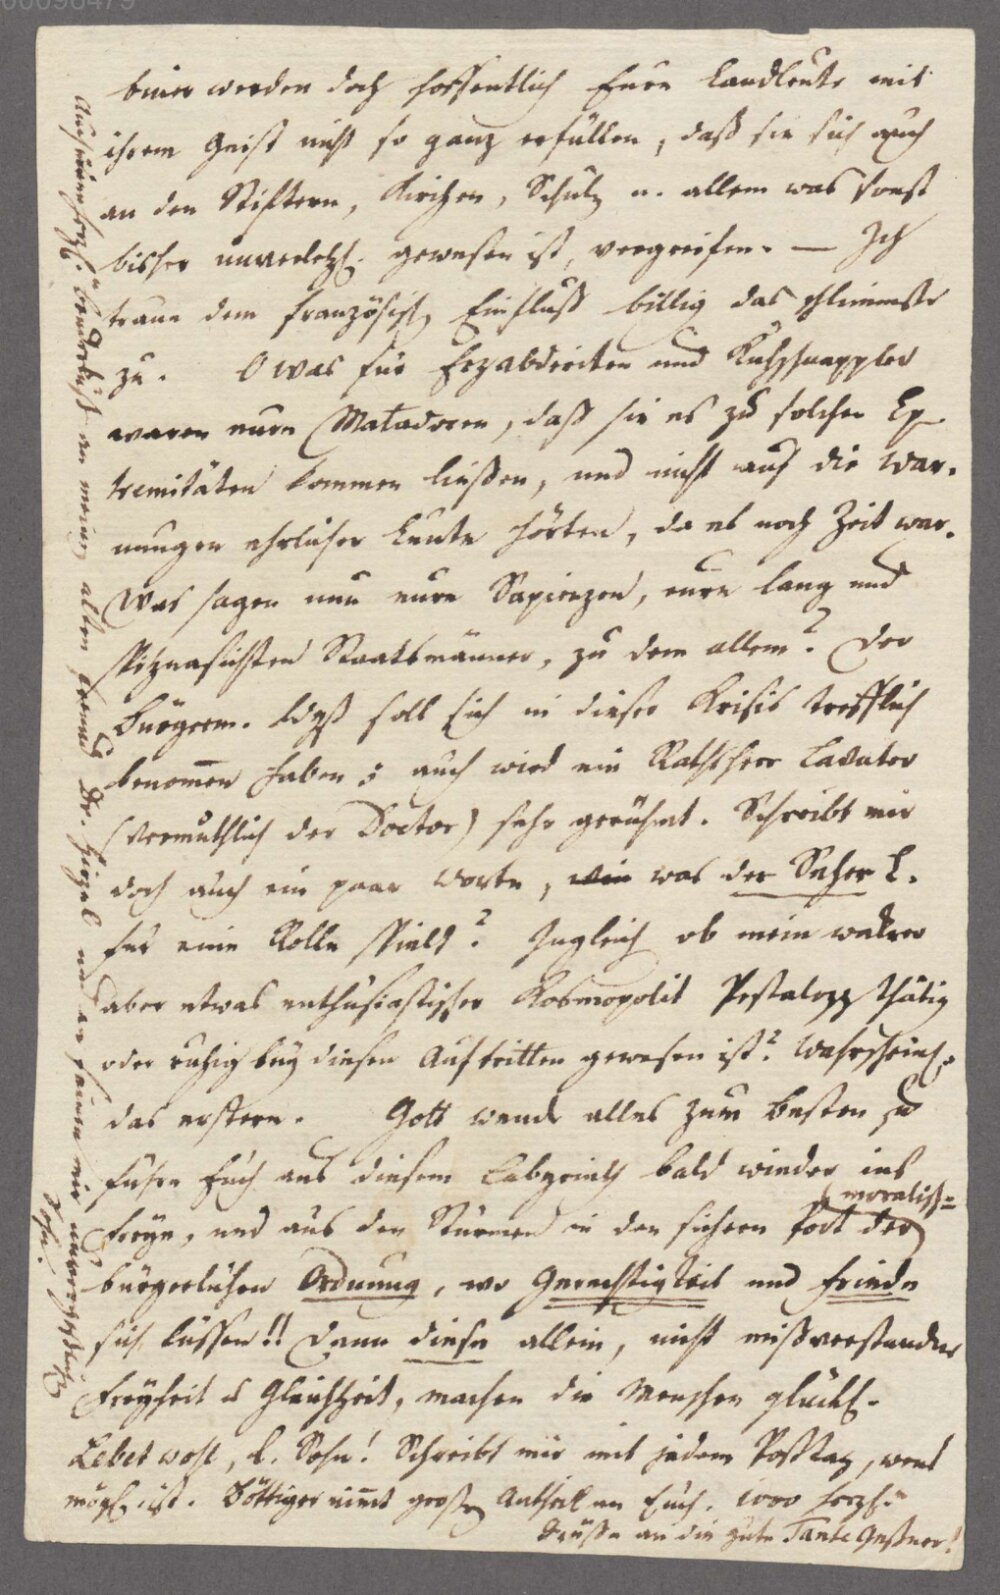 biner werden doch hoffentlich Eure Landleute mit
ihrem Geist nicht so ganz erfüllen, daß sie sich auch
an den Stiftern, Kirchen, Schulz u. allem was sonst
bisher unverletzl. gewesen ist, vergreifen. — Ich
traue dem französisch Einfluß billig das schlimmste
zu. O was für Erzabderiten und Kuhschnappler
waren eure Matadoren, daß sie es zu solchen Ex-
tremitäten kommen ließen, und nicht auf die War-
nungen ehrlicher Leute hörten, da es noch Zeit war.
Was sagen nun eure Sapienzen, eure lang und
spiznasichten Staatsmänner, zu dem allem? Der
Bürgerm. Wyß soll sich in dieser Krisis trefflich
benom̅en haben; auch wird ein Rathsherr Lavater
(vermuthlich der Doctor) sehr gerühmt. Schreibt mir
doch auch ein paar Worte, wie was der Seher L.
für eine Rolle spielt? Zugleich ob mein wakrer
aber etwas enthusiastischer Kosmopolit Pestalozz thätig
oder ruhig bey diesen Auftritten gewesen ist? Wahrscheinl.
das erstere. Gott wende alles zum Besten u
führe Euch aus diesem Labyrinth bald wieder ins
moralisch=
Freye, und aus den Stürmen in den sichern Port der
bürgerlichen Ordnung, wo Gerechtigkeit und Friede
sich küssen!! Denn diese allein, nicht mißverstandne
Freyheit u Gleichheit, machen die Menschen glückl.
Lebet wohl, l. Sohn! Schreibt mir mit jedem Posttag, wenns
mögl. ist. Böttiger nim̅t großen Antheil an Euch. 1000 herzl.
Grüße an die gute Tante Geßner!
Auch einen herzl. Händedruck an meinen alten Freund Dr. Hirzel und an seinen mir unvergeßlichen
Sohn.